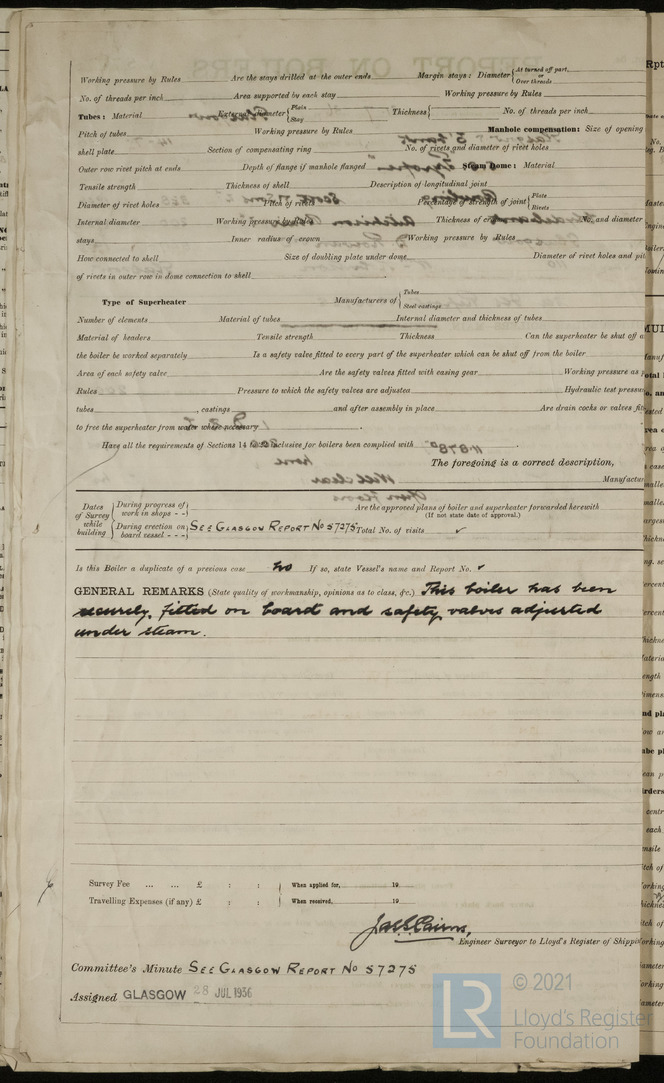 Working pressure by Rules Are the stays drilled at the outer ends Margin stays: Diameter { At turned off part or Over threads
No. of threads per inch Area supported by each stay Working pressure by Rules
Tubes: Material External diameter { Plain Stay Thickness { No. of threads per inch
Pitch of tubes Working pressure by Rules Manhole compensation: Size of opening
shell plate Section of compensating ring No. of rivets and diameter of rivet holes
Outer row rivet pitch at ends Depth of flange if manhole flanged Steam Dome: Material
Tensile strength Thickness of shell Description of longitudinal joint
Diameter of rivet holes Pitch of rivets Percentage of strength of joint { Plate Rivets
Internal diameter Working pressure by Rules Thickness of crown No. and diameter
stays Inner radius of crown Working pressure by Rules
How connected to shell Size of doubling plate under dome Diameter of rivet holes and pit
of rivets in outer row in dome connection to shell
Type of Superheater Manufacturers of { Tubes Steel castings
Number of elements Material of tubes Internal diameter and thickness of tubes
Material of headers Tensile strength Thickness Can the superheater be shut off a
the boiler be worked separately Is a safety valve fitted to every part of the superheater which can be shut off from the boiler
Area of each safety valve Are the safety valves fitted with easing gear Working pressure as p
Rules Pressure to which the safety valves are adjusted Hydraulic test pressu
tubes , castings and after assembly in place Are drain cocks or valves fit
to free the superheater from water where necessary
Have all the requirements of Sections 14 to inclusive for boilers been complied with
The foregoing is a correct description,
Manufactur
Dates of Survey while building { During progress of work in shops - - Are the approved plans of boiler and superheater forwarded herewith
(If not state date of approval.)
During erection on board vessel - - - } SEE GLASGOW REPORT No 57275 Total No. of visits ✓
Is this Boiler a duplicate of a previous case no If so, state Vessel's name and Report No. ✓
GENERAL REMARKS (State quality of workmanship, opinions as to class, &c.) This boiler has been
securely fitted on board and safety valves adjusted
under steam.
Survey Fee ... ... £ : : { When applied for, 19
Travelling Expenses (if any) £ : : { When received, 19
Jas S Cairns,
Engineer Surveyor to Lloyd's Register of Shippi
Committee's Minute SEE GLASGOW REPORT No 57275
Assigned GLASGOW 28 JUL 1936
LR © 2021
Lloyd's Register
Foundation